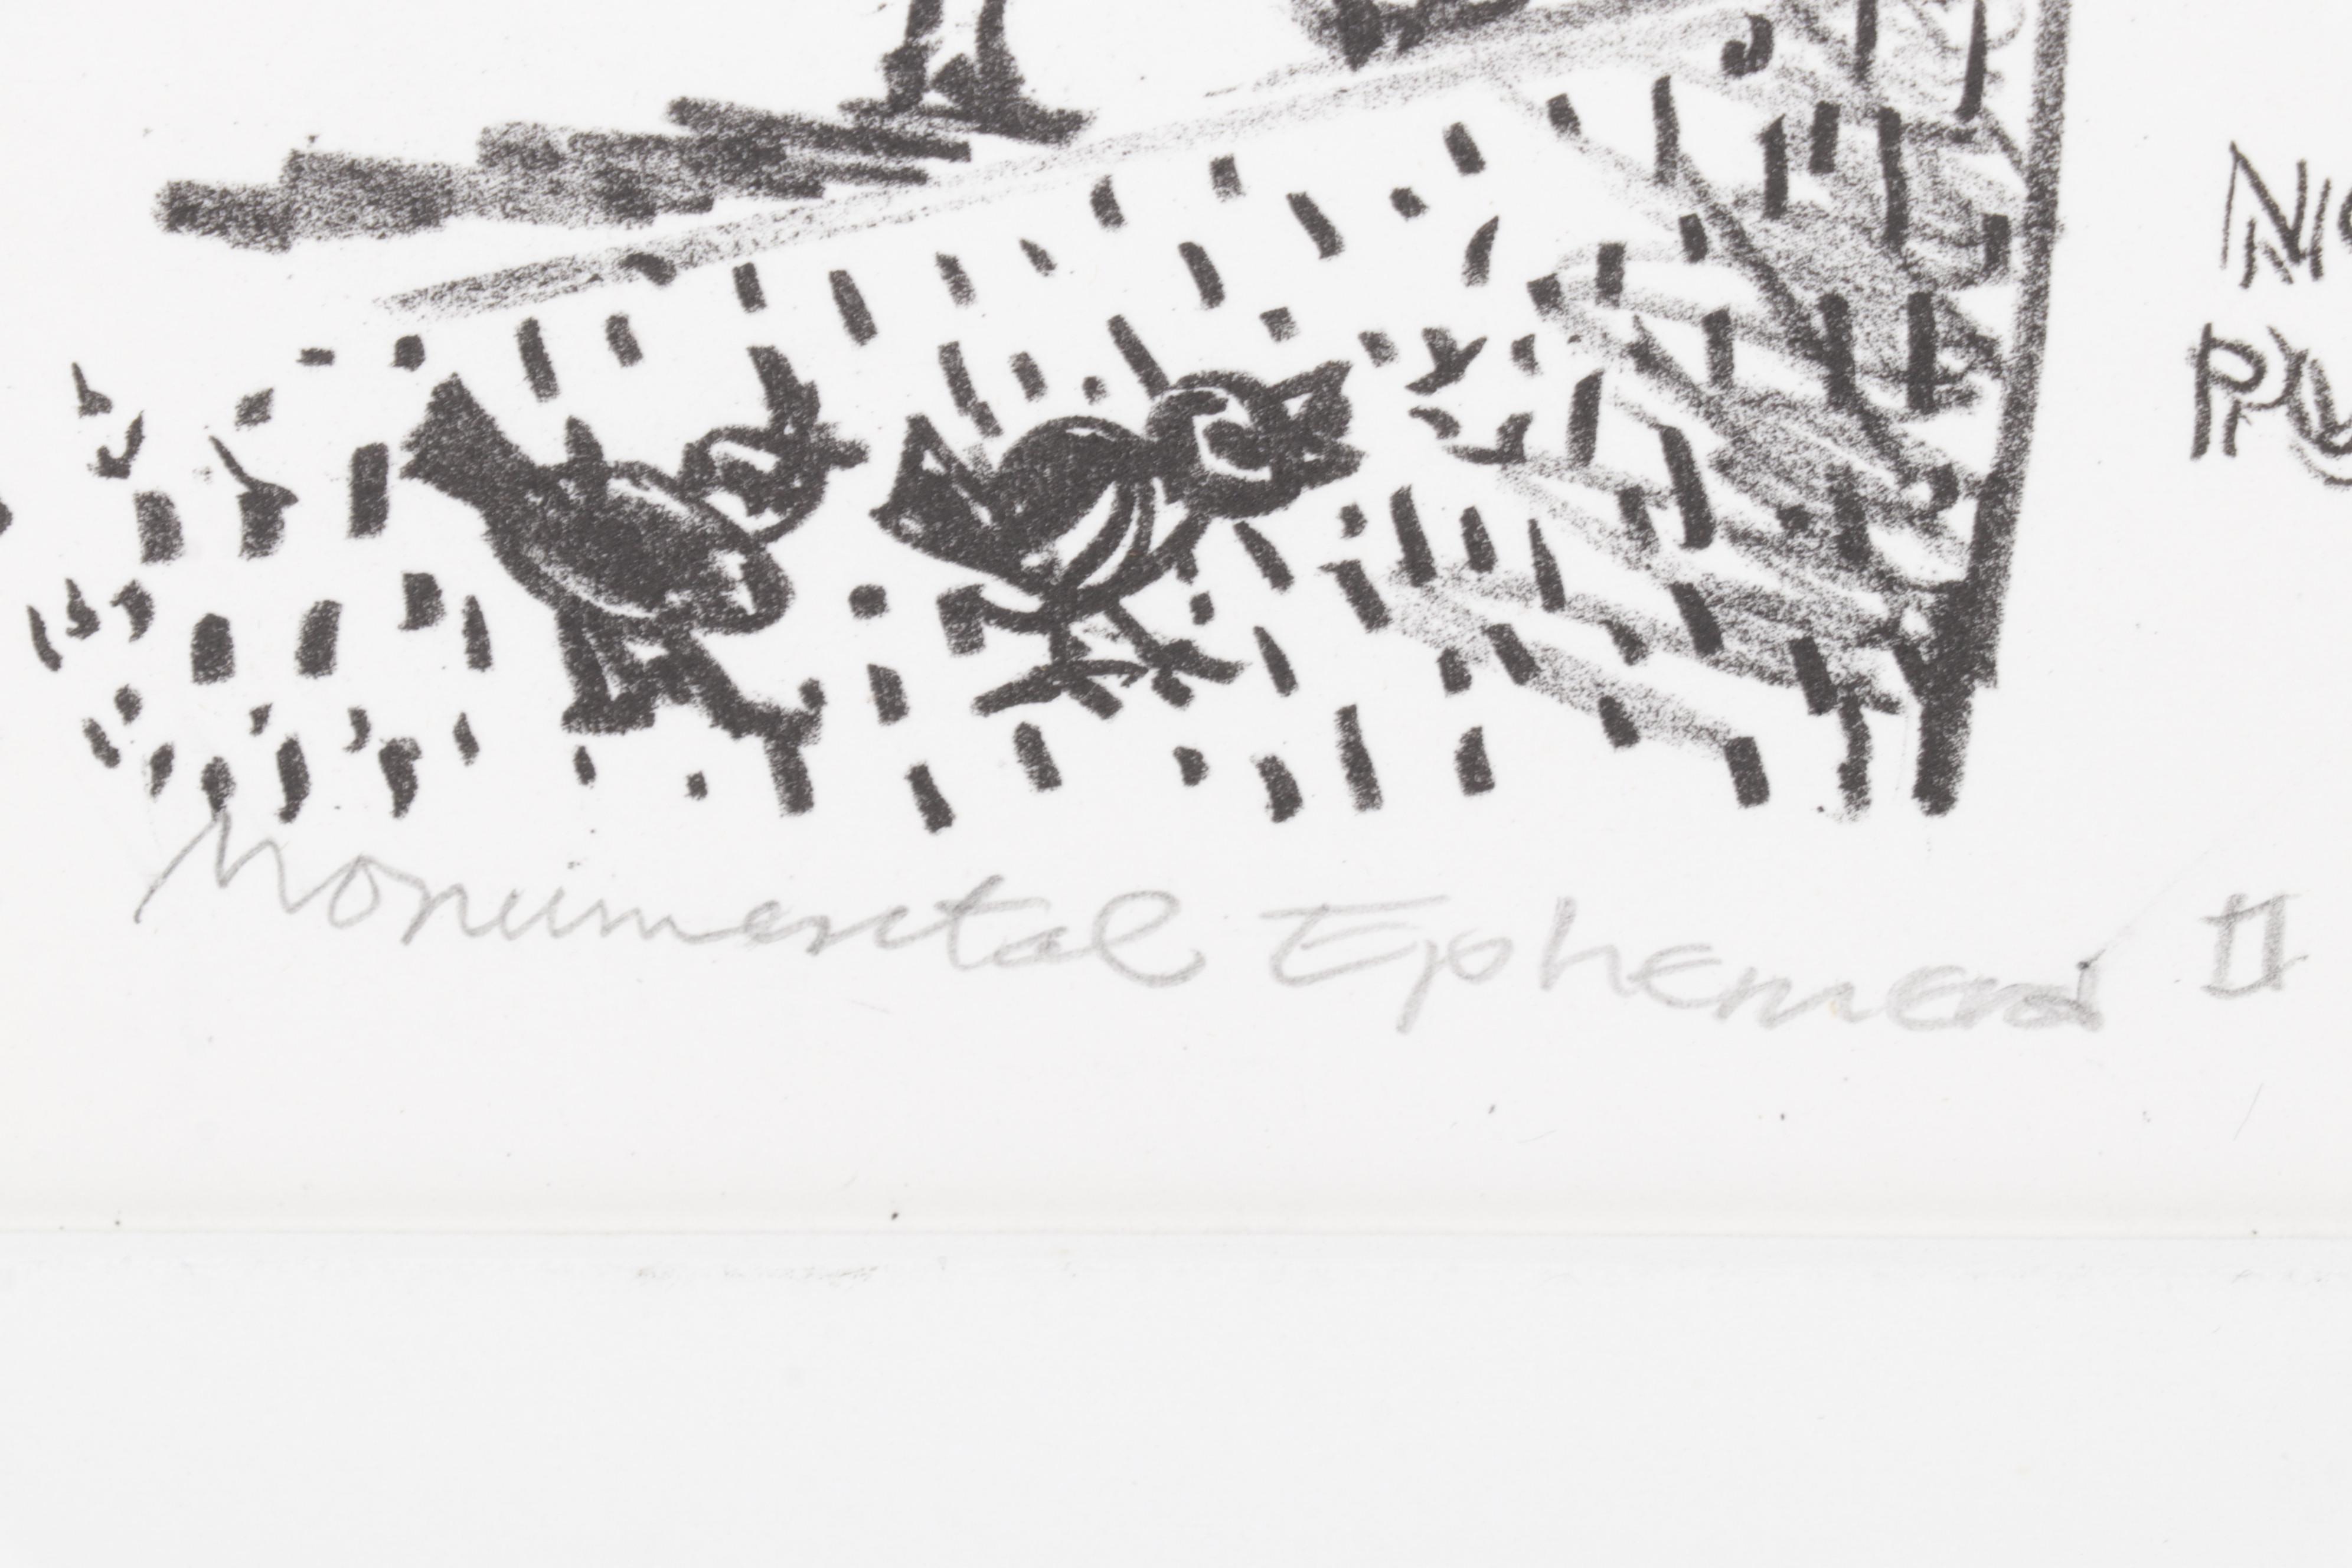 Monumental Ephemera II